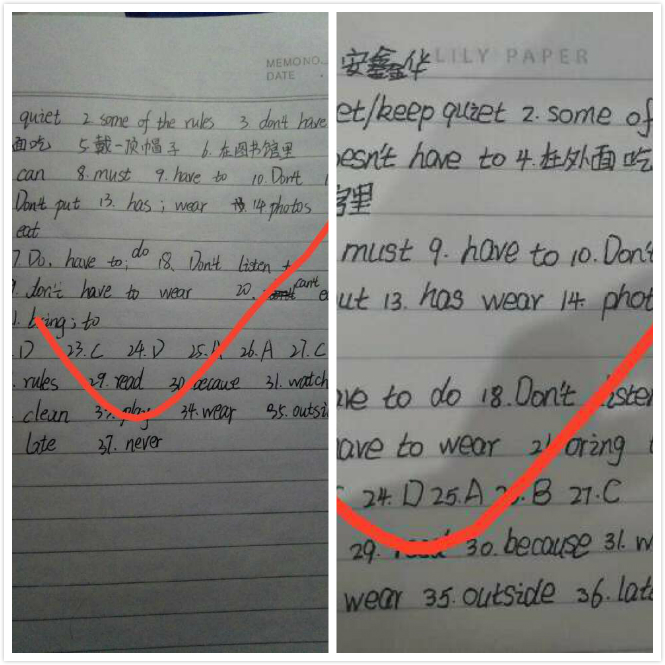 MEMO NO.
DATE
quiet 2 some of the rules 3 don't have
面吃 5 戴一顶帽子 6. 在图书馆里
can 8. must 9. have to 10. Don't
Don't put 13. has; wear 14 photos
eat
7. Do, have to; do 18. Don't listen t
9. don't have to wear 20. can't e
1. bring; to
. D 23. C 24. D 25. A 26. A 27. C
. rules 29. read 30. because 31. watch
. clean 33. play 34. wear 35. outsi
late 37. never
安鑫华 LILY PAPER
et/keep quiet 2. some of
esn't have to 4. 在外面吃
馆里
must 9. have to 10. Don't
ut 13. has wear 14. phot
ve to do 18. Don't listen
ave to wear 21. bring t
24. D 25. A 26. B 27. C
29. read 30. because 31. w
wear 35. outside 36. late